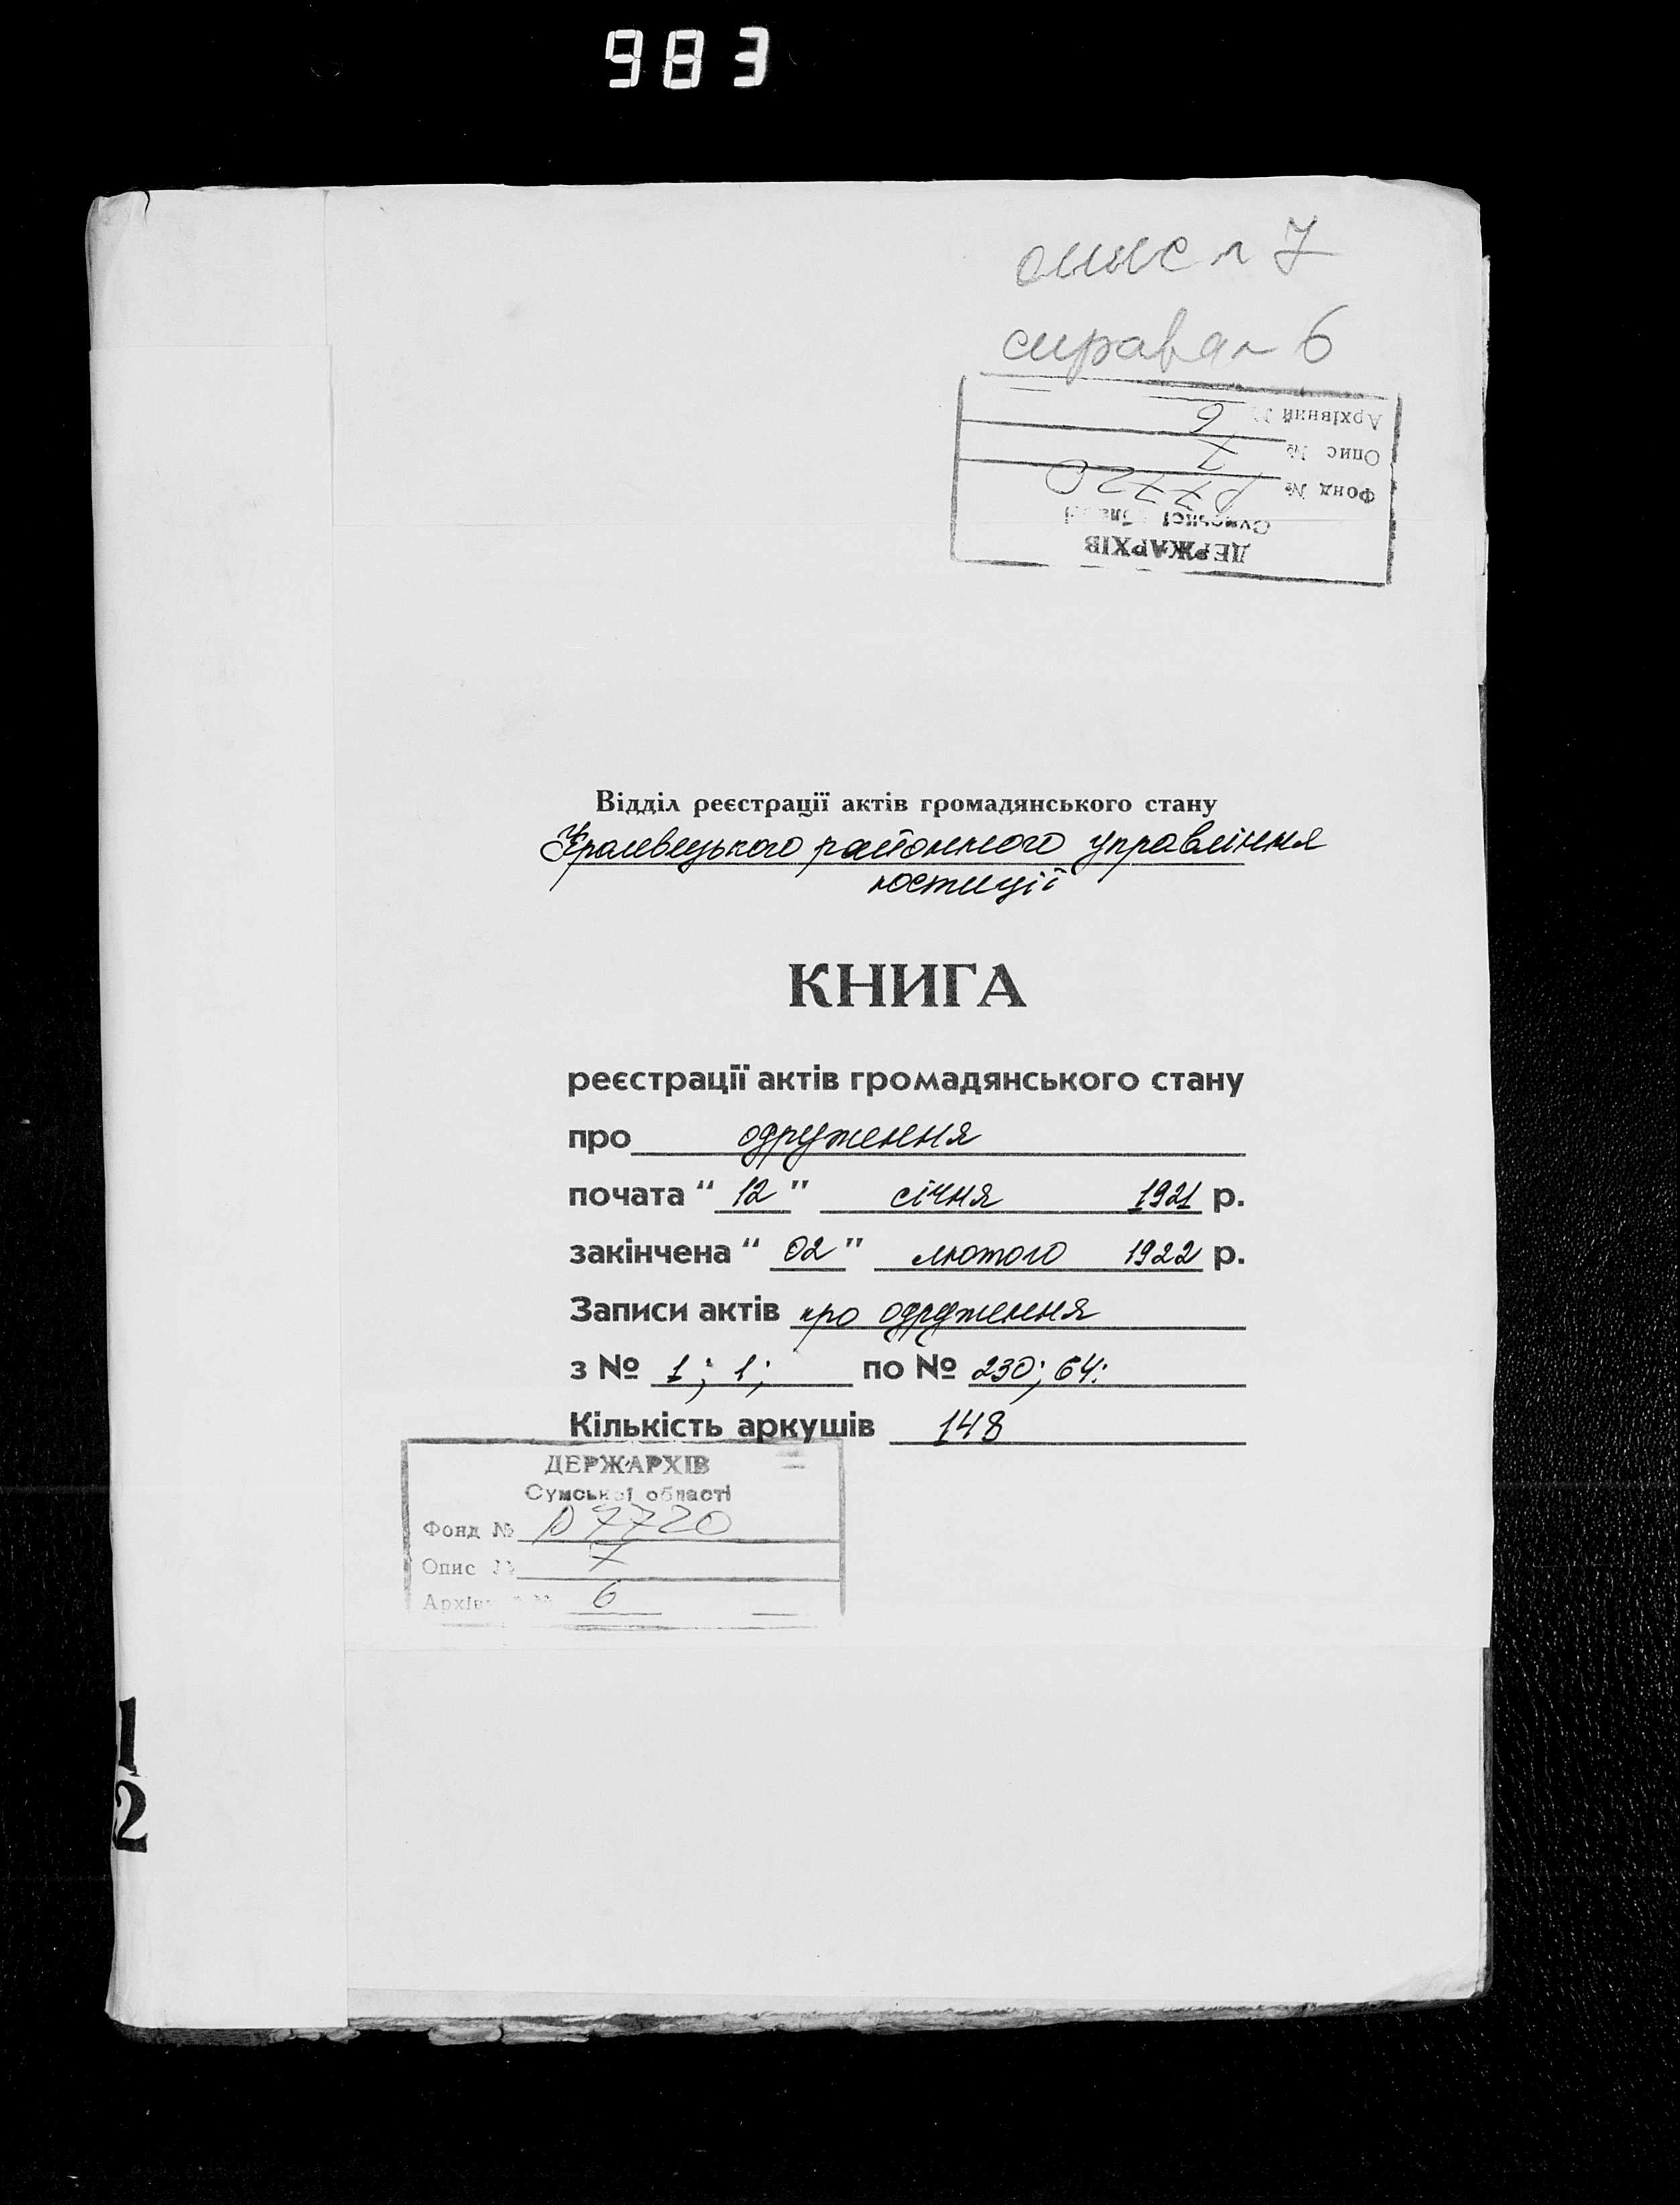 983
опис 7
справа 6
Архівний № 6
Опис № 7
Фонд № Р7720
Сумської області
ДЕРЖАРХІВ
Відділ реєстрації актів громадянського стану
Кролевецького районного управління
юстиції
КНИГА
реєстрації актів громадянського стану
про одруження
почата “ 12 ” січня 1921 р.
закінчена “ 02 ” лютого 1922 р.
Записи актів про одруження
з № 1; 1; по № 230; 64:
Кількість аркушів 148
ДЕРЖАРХІВ
Сумської області
Фонд № Р7720
Опис № 7
Архівний № 6
1
2